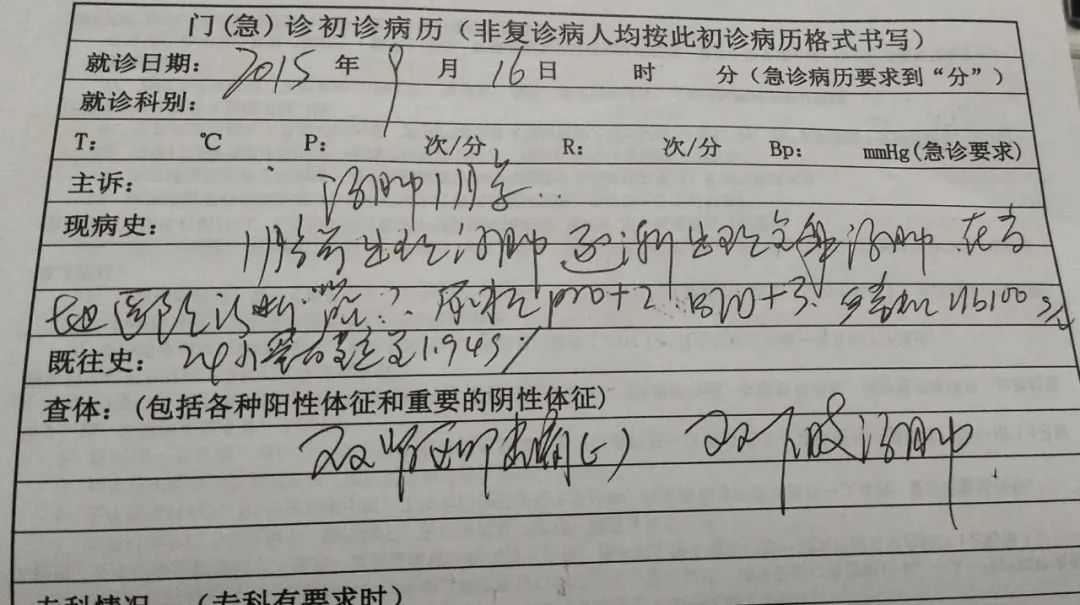 门(急)诊初诊病历(非复诊病人均按此初诊病历格式书写)
就诊日期: 2015 年 9 月 16 日 时 分(急诊病历要求到“分”)
就诊科别:
T: ℃ P: 次/分 R: 次/分 Bp: mmHg(急诊要求)
主诉: 浮肿1月余.
现病史:
1月余前出现浮肿 逐渐出现全身浮肿 在当
地医院诊断 ? 尿检 pro+2 BLD+3.
既往史: 24小 蛋白定量 1.945
查体:(包括各种阳性体征和重要的阴性体征)
双肾区叩击痛(-) 双下肢浮肿
专科情况 (专科有要求时)